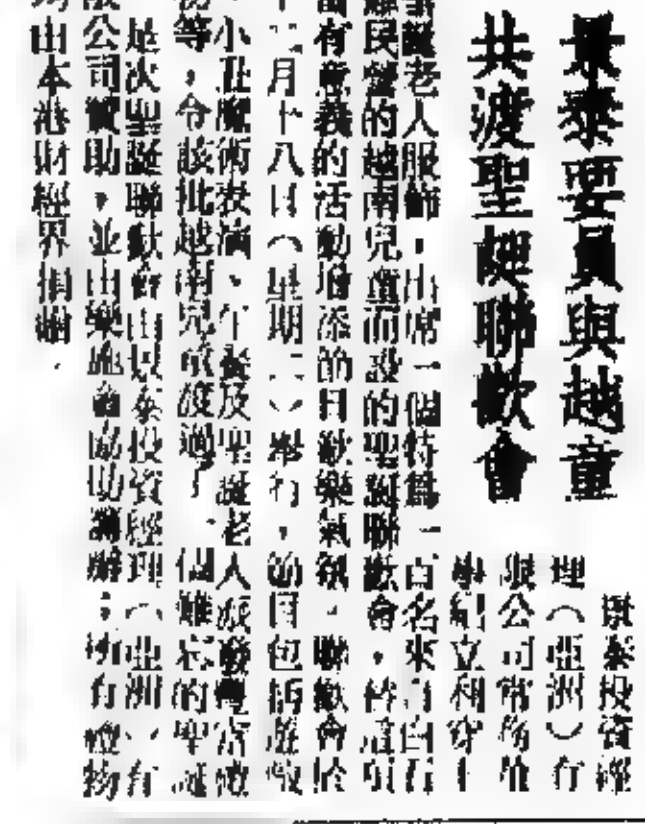 景泰要員與越童
共渡聖誕聯歡會
景泰投資經
理（亞洲）有
限公司常務董
事紀立和穿上
聖誕老人服飾，出席一個特為一百名來自白石
難民營的越南兒童而設的聖誕聯歡會，替這項
富有意義的活動增添節日歡樂氣氛。聯歡會於
十二月十八日（星期二）舉行，節目包括遊戲
、小丑魔術表演、午餐及聖誕老人派發豐富禮
物等，令該批越南兒童渡過了一個難忘的聖誕
是次聖誕聯歡會由景泰投資經理（亞洲）有
限公司贊助，並由樂施會協助籌辦；所有禮物
均由本港財經界捐贈．